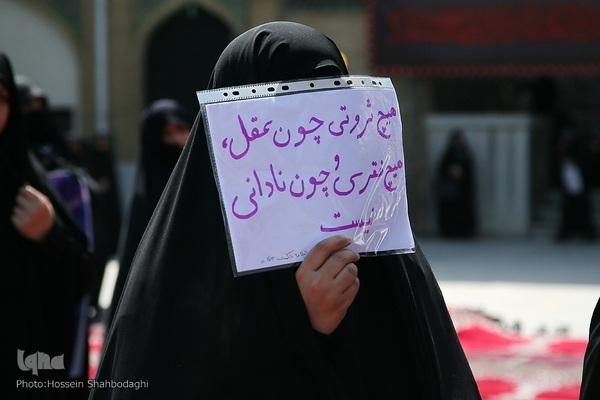 هیچ ثروتی چون عقل،
و
هیچ فقری چون نادانی
نیست
iqna
Photo:Hossein Shahbodaghi